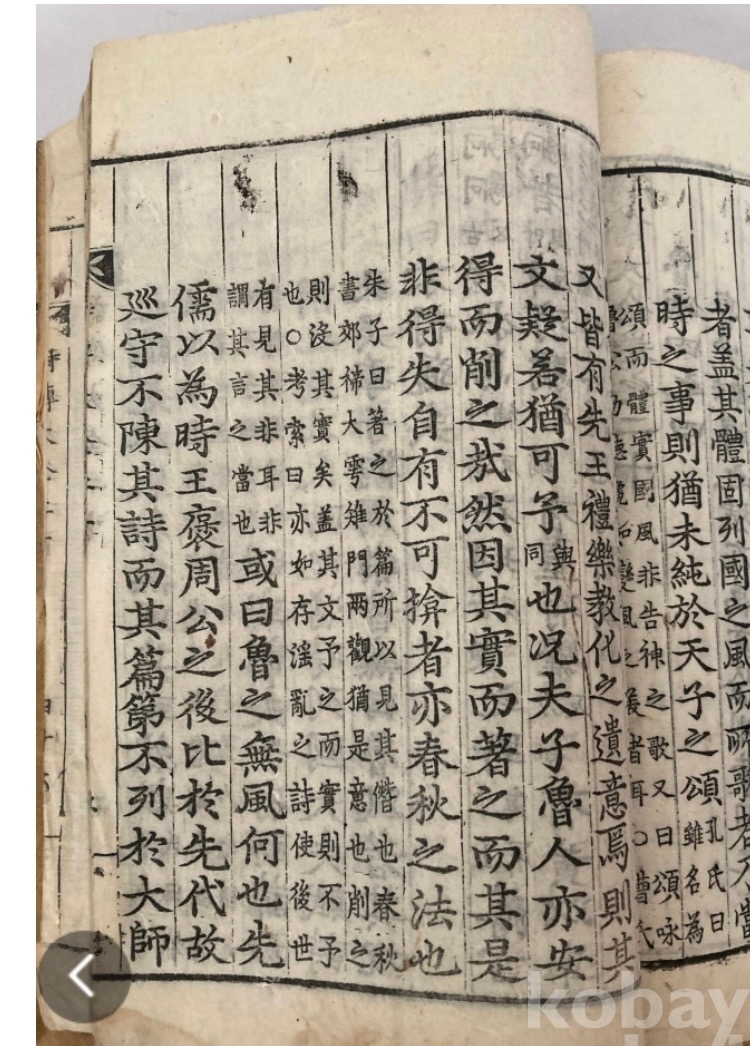 者盖其體固列國之風而所歌者乃當
時之事則猶未純於天子之頌孔氏曰雖名為
頌而體實國風非告神之歌又曰頌詠
魯公功德纔如變風之美者耳○曹氏
又皆有先王禮樂教化之遺意焉則其
文疑若猶可予與同也况夫子魯人亦安
得而削之哉然因其實而著之而其是
非得失自有不可揜者亦春秋之法也
朱子曰著之於篇所以見其僭也春秋
書郊禘大雩雉門两觀猶是意也削之
則沒其實矣盖其文予之而實則不予
也○考索曰亦如存滛亂之詩使後世
有見其非耳非謂其言之當也或曰魯之無風何也先
儒以為時王褒周公之後比於先代故
廵守不陳其詩而其篇第不列於大師
kobay